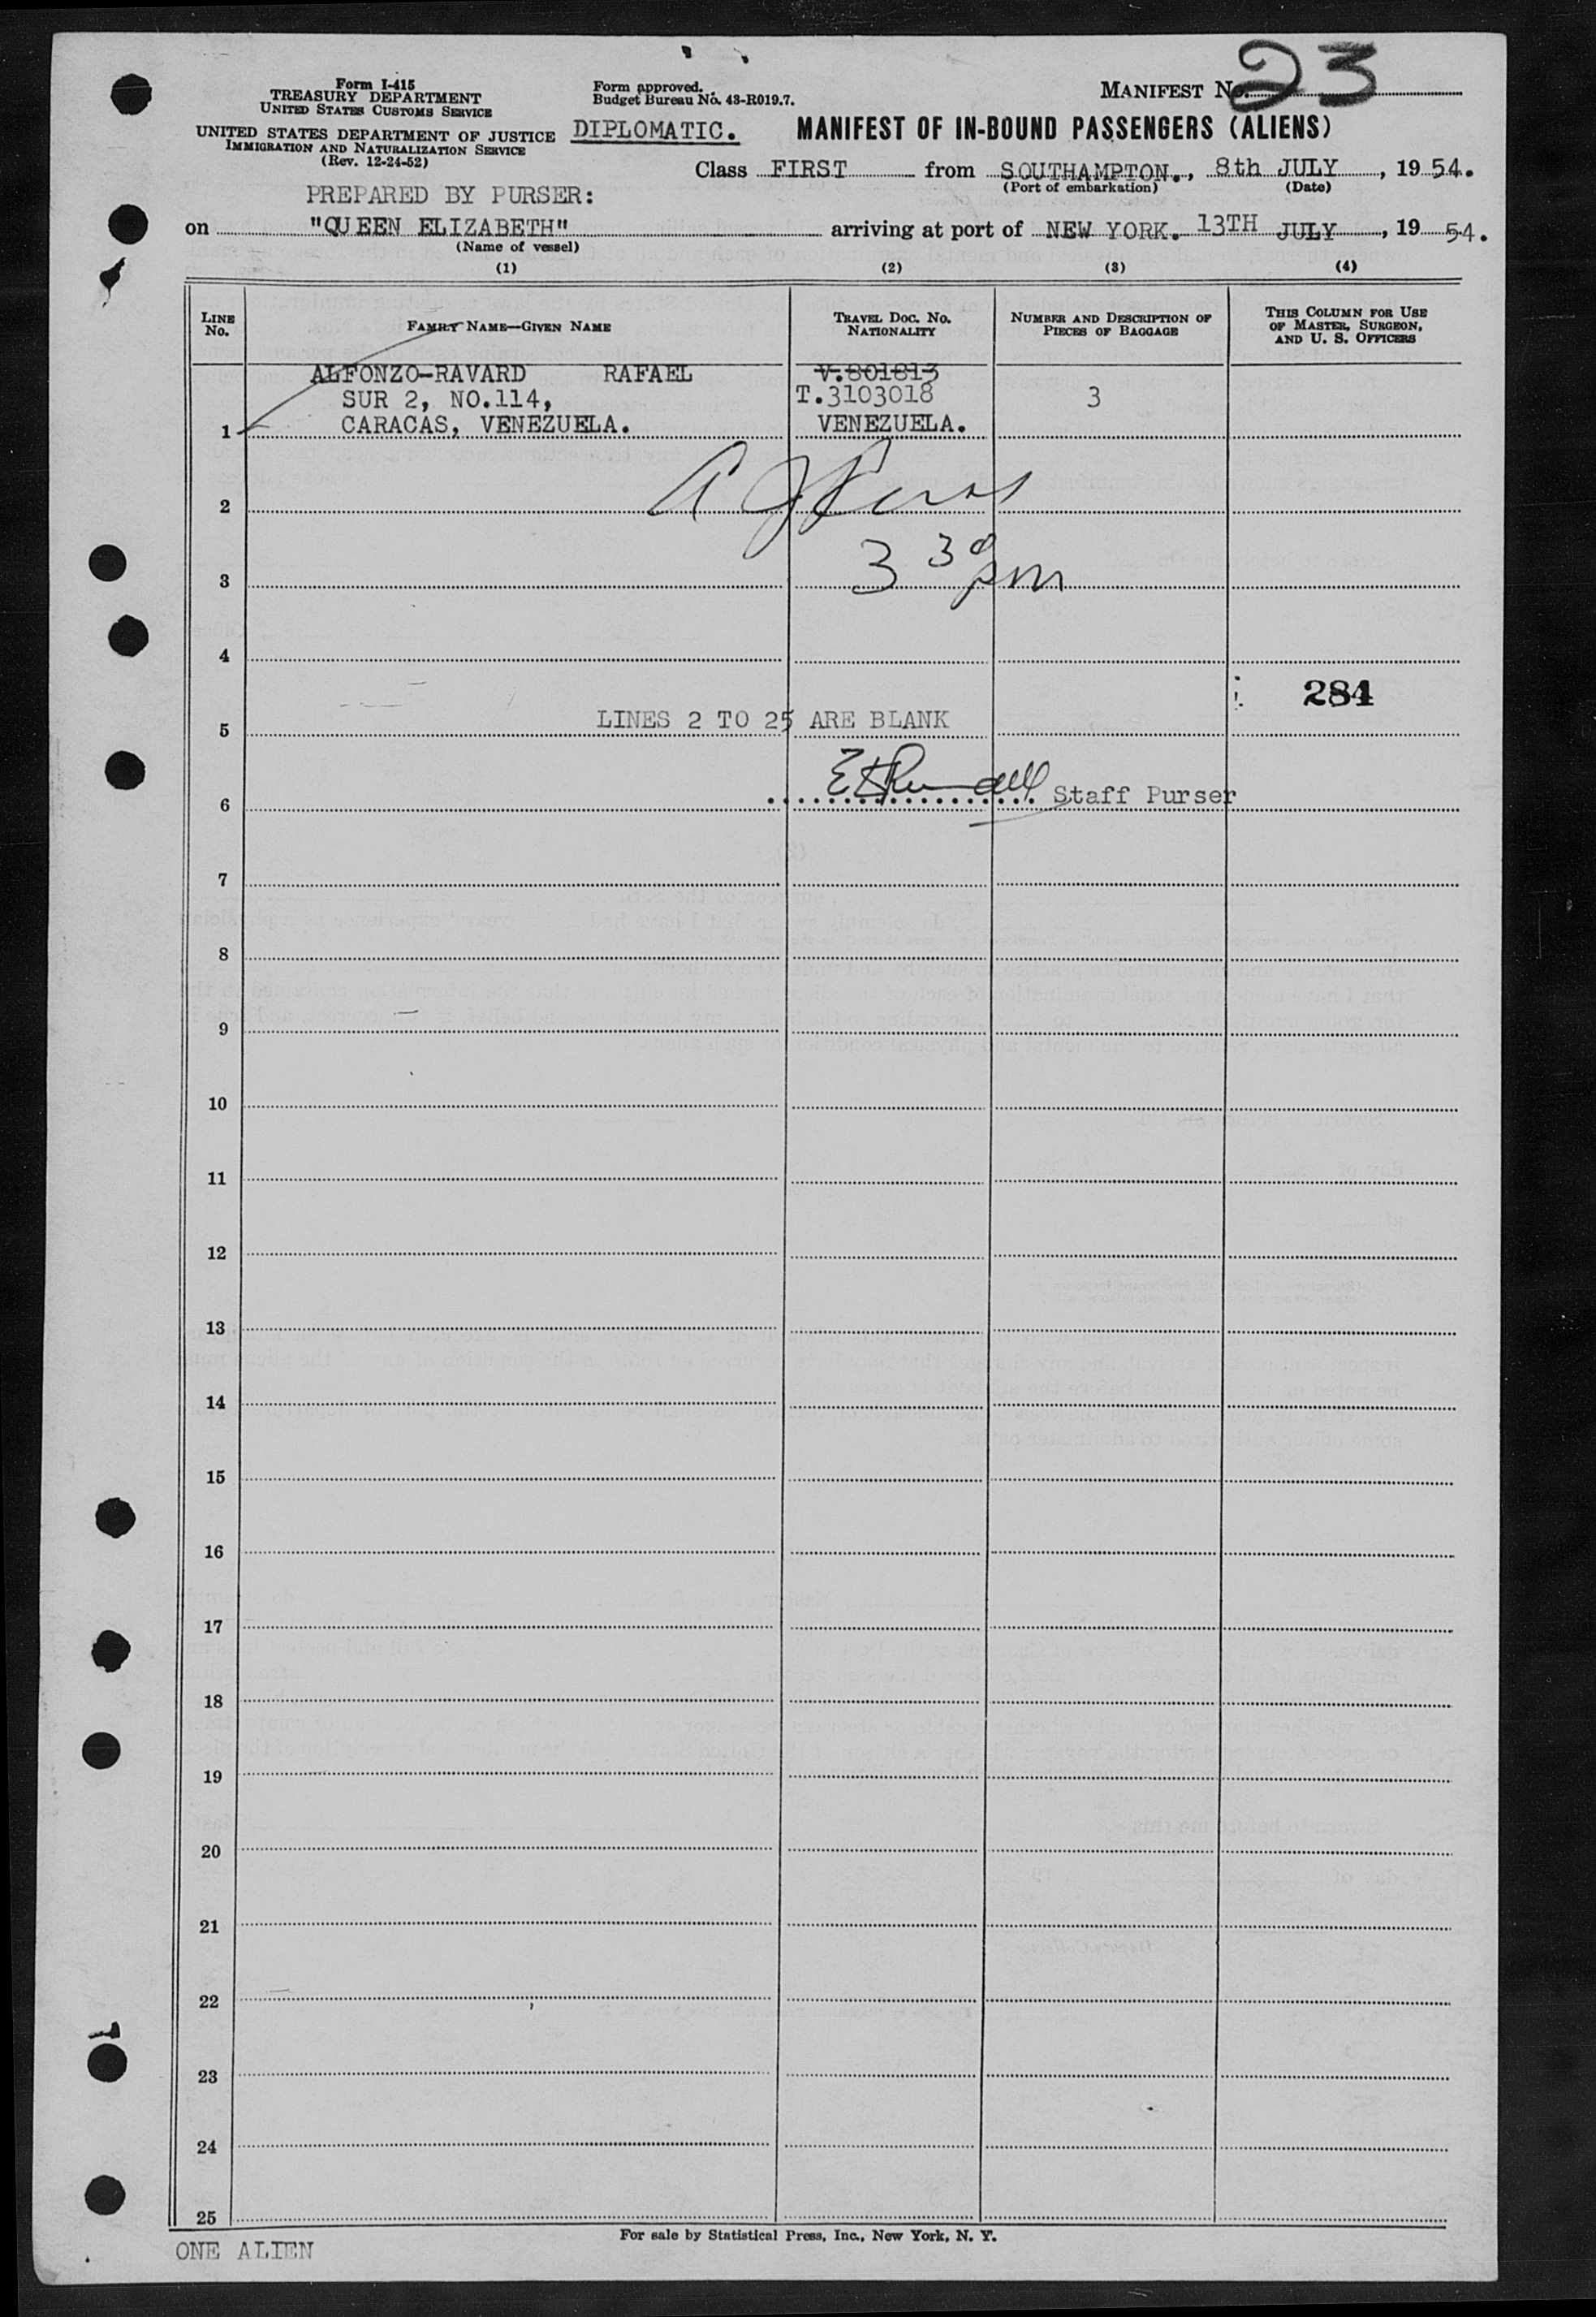 Form I-415
TREASURY DEPARTMENT
UNITED STATES CUSTOMS SERVICE
UNITED STATES DEPARTMENT OF JUSTICE
IMMIGRATION AND NATURALIZATION SERVICE
(Rev. 12-24-52)
Form approved.
Budget Bureau No. 43-R019.7.
MANIFEST No. 23
DIPLOMATIC. MANIFEST OF IN-BOUND PASSENGERS (ALIENS)
Class FIRST from SOUTHAMPTON., 8th JULY, 1954.
(Port of embarkation) (Date)
PREPARED BY PURSER:
on "QUEEN ELIZABETH" arriving at port of NEW YORK. 13TH JULY, 1954.
(Name of vessel)
(1) (2) (3) (4)
LINE No. FAMILY NAME—GIVEN NAME TRAVEL DOC. No. NATIONALITY NUMBER AND DESCRIPTION OF PIECES OF BAGGAGE THIS COLUMN FOR USE OF MASTER, SURGEON, AND U. S. OFFICERS
ALFONZO-RAVARD RAFAEL V.801813
SUR 2, NO.114, T.3103018 3
1 CARACAS, VENEZUELA. VENEZUELA.
2
3 3 30 pm
4
284
5 LINES 2 TO 25 ARE BLANK
6 Staff Purser
7
8
9
10
11
12
13
14
15
16
17
18
19
20
21
22
23
24
25
For sale by Statistical Press, Inc., New York, N. Y.
ONE ALIEN